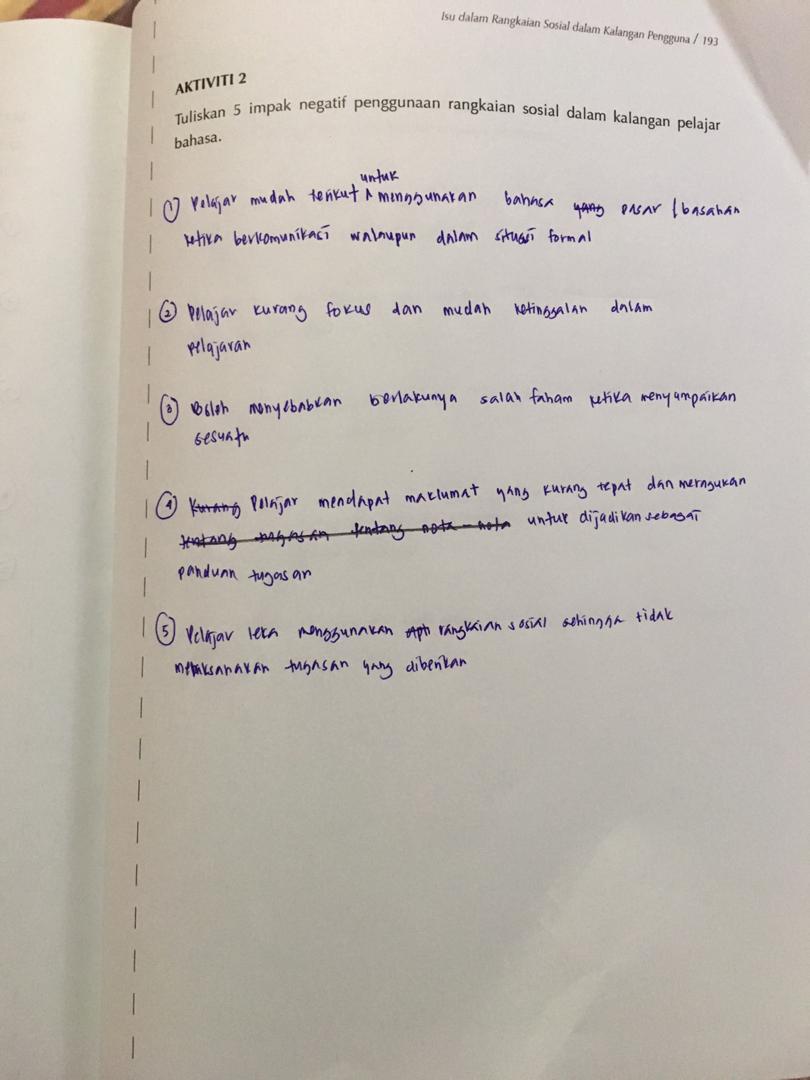 Isu dalam Rangkaian Sosial dalam Kalangan Pengguna / 193
AKTIVITI 2
Tuliskan 5 impak negatif penggunaan rangkaian sosial dalam kalangan pelajar
bahasa.
untuk
① Pelajar mudah terikut ^ menggunakan bahasa yang pasar / basahan
ketika berkomunikasi walaupun dalam situasi formal
② Pelajar kurang fokus dan mudah ketinggalan dalam
pelajaran
③ Boleh menyebabkan berlakunya salah faham ketika menyampaikan
sesuatu
④ Kurang Pelajar mendapat maklumat yang kurang tepat dan meragukan
tentang tugasan tentang nota-nota untuk dijadikan sebagai
panduan tugasan
⑤ Pelajar leka menggunakan apl rangkaian sosial sehingga tidak
melaksanakan tugasan yang diberikan